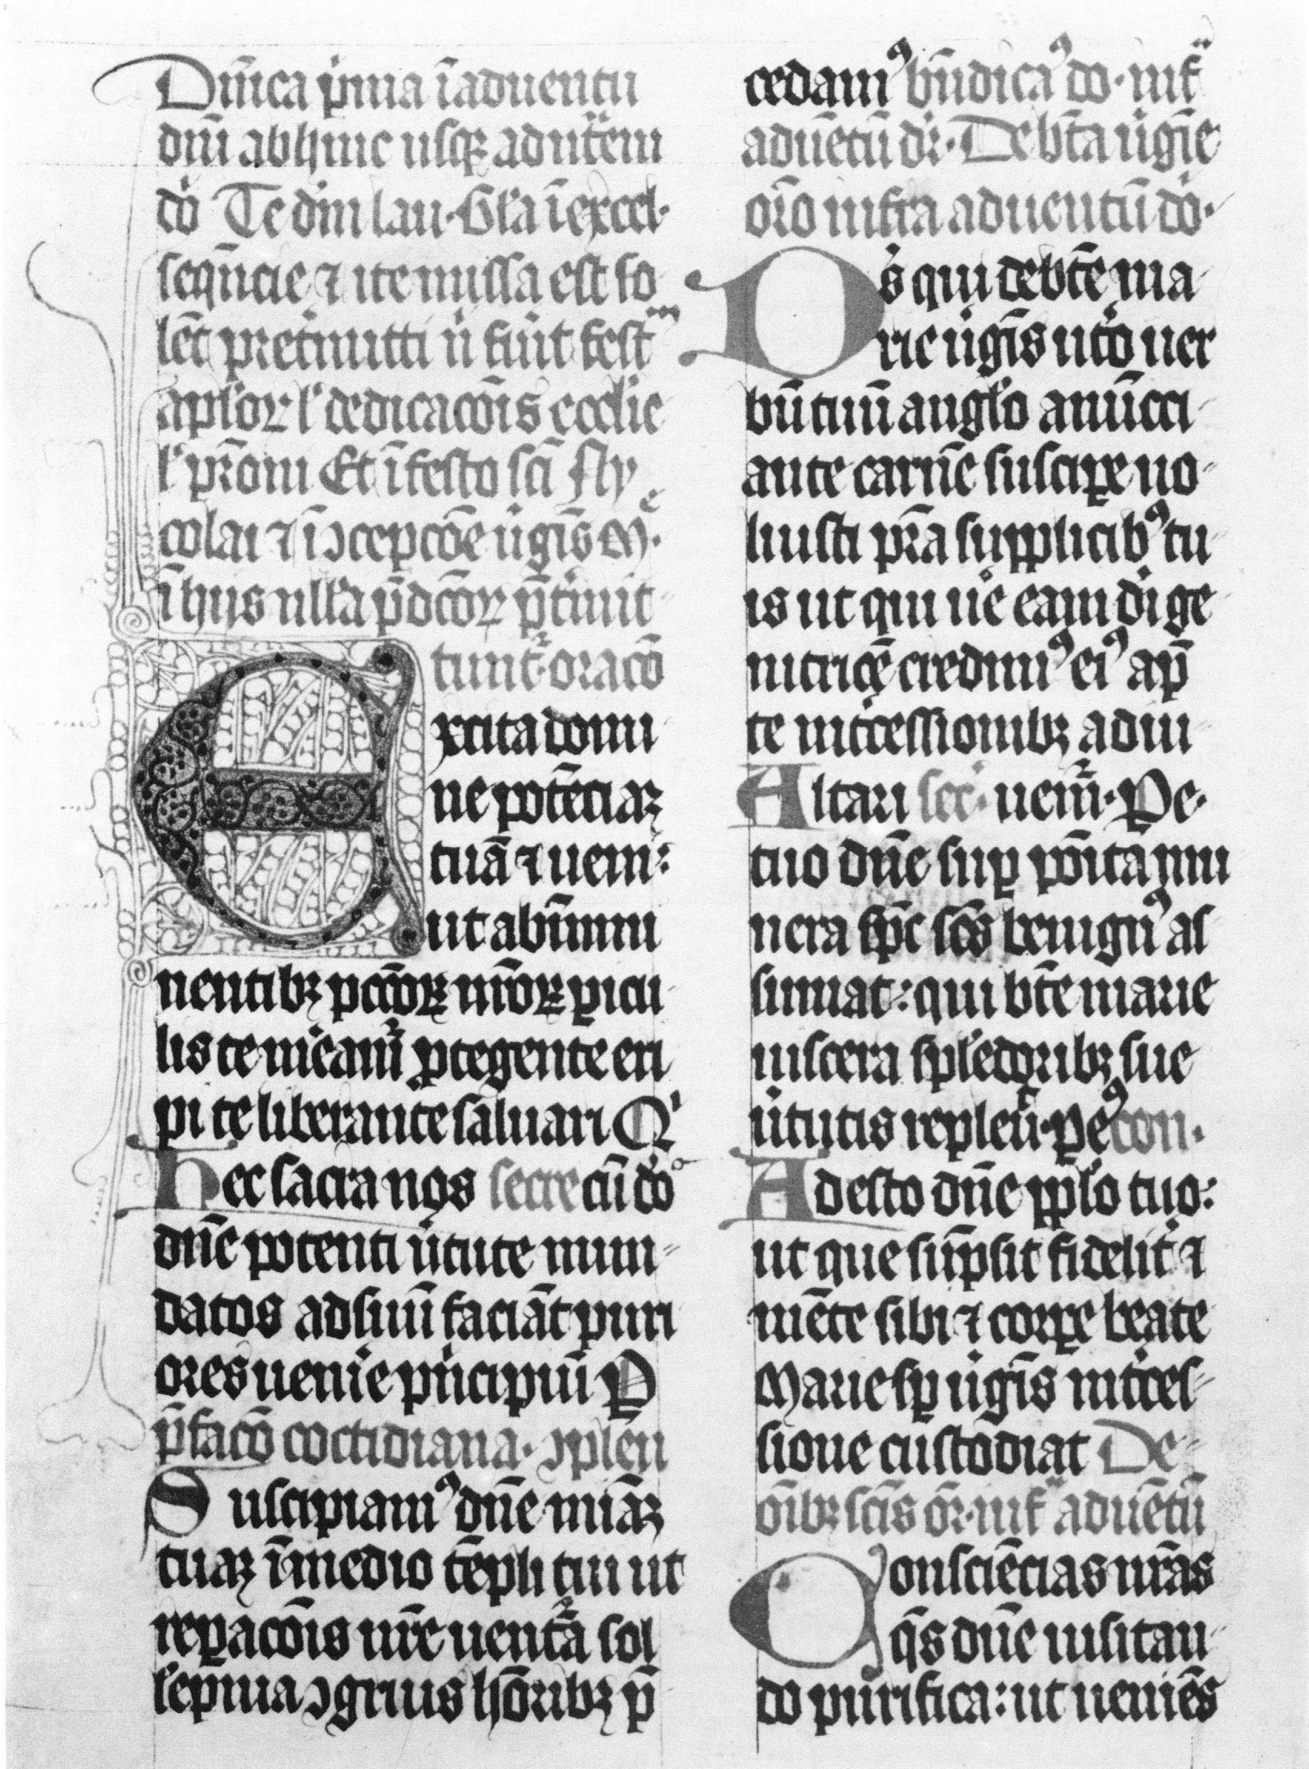 Dn̄ica p̍ma īaduentu
dnī abhinc usq; aduıt̄em
do Te dm̄ lau·Gl̍a īexcel·
seqn̄cie ⁊ ite missa est so
lēt pret̍mitti n̄ fiūt fest
apl̍oꝝ l̍ dedicacōis eccl̍ie
l̍ pr̄oni Et īfesto sc̄i Ny
colai ⁊ ī ꝯcepcōe u̍gīs M·
īhijs ull̍a p̄dc̄oꝝ p̄t̍mit
tunt᷑ oracō
Excita domi
ne potēciaꝫ
tuā ⁊ ueni:
ut abīmmi
nentibꝫ pcc̄oꝝ nr̄oꝝ ꝑicu
lis te mream᷑ ꝓtegente eri
pi te liberante saluari Q̍
Hec sacra nos secre cū do
dn̄e potenti u̍tute mun⸗
datos adsuū faciāt puri
ores uenire pn̍cipiū P
p̄facō cottidiana· ꝯplen̄
Suscipiamꝰ dn̄e mīaꝫ
tuaꝫ īmedio tēpli tui ut
reꝑacōis nr̄e uent᷑a sol
l̍epnia ꝯgruis hōribꝫ p̄
cedamꝰ bn̄dicaꝰ do· inf̄
aduētū dī· De bt̄a u̍gīe
or̄o infra aduentū do·
Ds̄ qui de bt̄e ma
rie u̍gīs ut̍o uer
bū tuū angl̍o anūcci
ante carnē susciꝑe uo⸗
luisti pr̄a supplicibꝰ tu
is ut qui ue̍ eam di ge
nitricē credimꝰ eiꝰ ap̄
te int̍cessionibꝫ adiu⸗
Altari sec̍· uenīt· Pe·
tuo dn̄e suꝑ pōita mu
nera sp̄c sc̄s benignꝰ as
sumat: qui bt̄e marie
uiscera spl̍edoribꝫ sue
u̍tutis repleu̍· ꝑeꝰ con·
Adesto dn̄e ppl̍o tuo:
ut que sūpsit fidelit̍ ⁊
mēte sibi ⁊ corꝑe beate
Marie sꝑ u̍gīs int̍ces⸗
sione custodiat De⸗
oībꝫ sc̄is or̄· inf̄ aduētū
Consciēcias nr̄as
qs̄ dn̄e uisitan⸗
do purifica: ut ueniēs